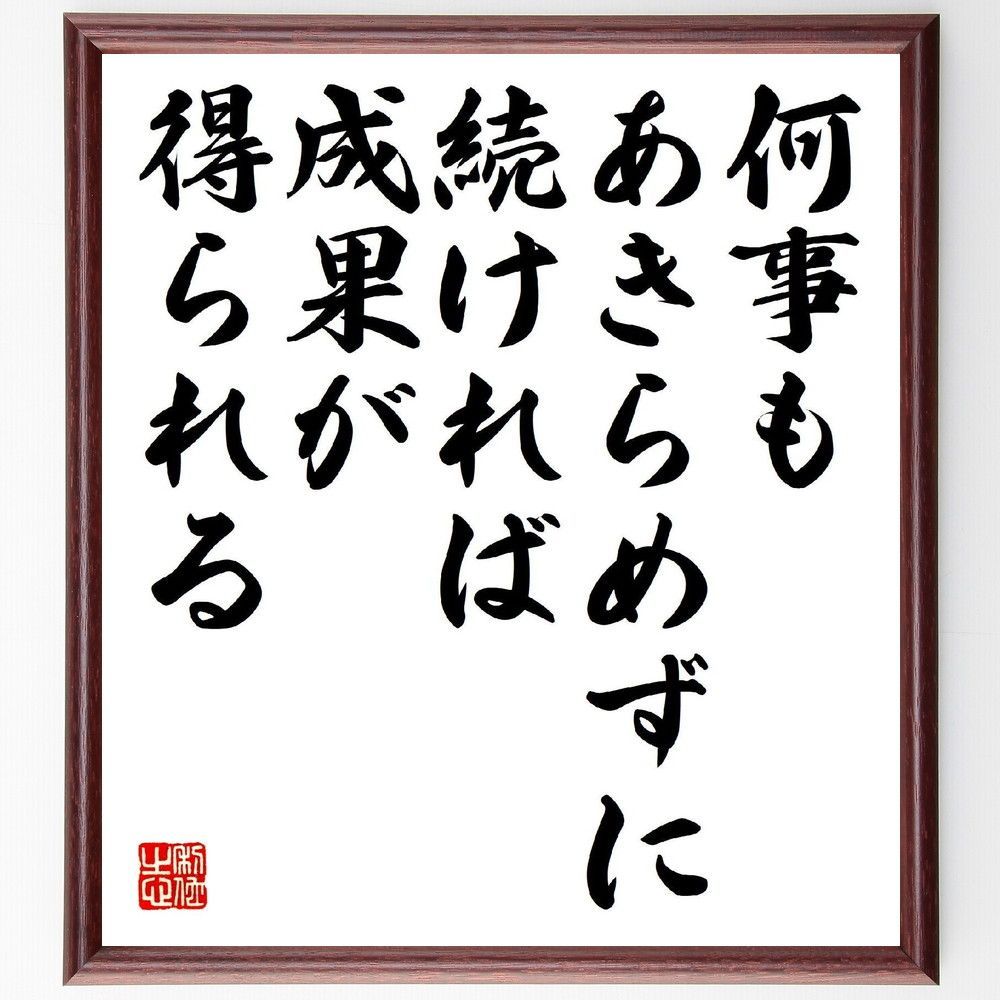 何事も
あきらめずに
続ければ
成果が
得られる